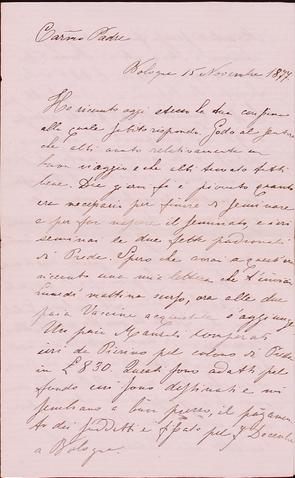 Car.mo Padre
Bologna 15 Novembre 1877.
Ho ricevuto oggi stesso la tua
alla quale subito rispondo. Godo al sentire
che abbi avuto relativamente un
buon viaggio e che abbi trovato tutti
bene. Due giorni fa è piovuto quanto
era necessario per finire di seminare
e per far nascere il seminato, e ieri
seminai le due fette padronali
di Prede. Spero che avrai a quest'ora
ricevuto una mia lettera che t'inviai
lunedì mattina scorso, ora alle due
paia Vaccine acquistate s'aggiunge
Un paio comperati
ieri da Pierino pel colono di
in £ 830. Questi sono adatti pel
fondo cui sono destinati e mi
sembrano a buon prezzo, il pagamen-
to dei suddetti è fissato pel 7 Decembre
a Bologna.